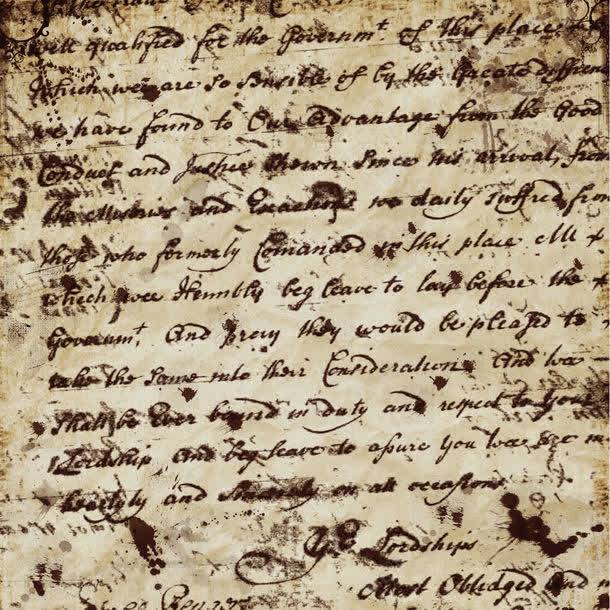 well qualified for the Governm^t of this place
Which wee are so Sensible of by the Greate differen
we have found to Our Advantage from the Good
Conduct and Justice shown Since his arrival, from
the Miseries and Exactions we daily suffred from
those who formerly Comanded in this place All
which wee Humbly beg leave to lay before the
Governm^t, And pray they would be pleased to
take the Same into their Consideration And wee
Shall be Ever bound in duty and respect to your
Lordship, And beg leave to assure You wee are m
heartyly and Sincerely on all occasions
Y^r Lordships
Most Obledged and